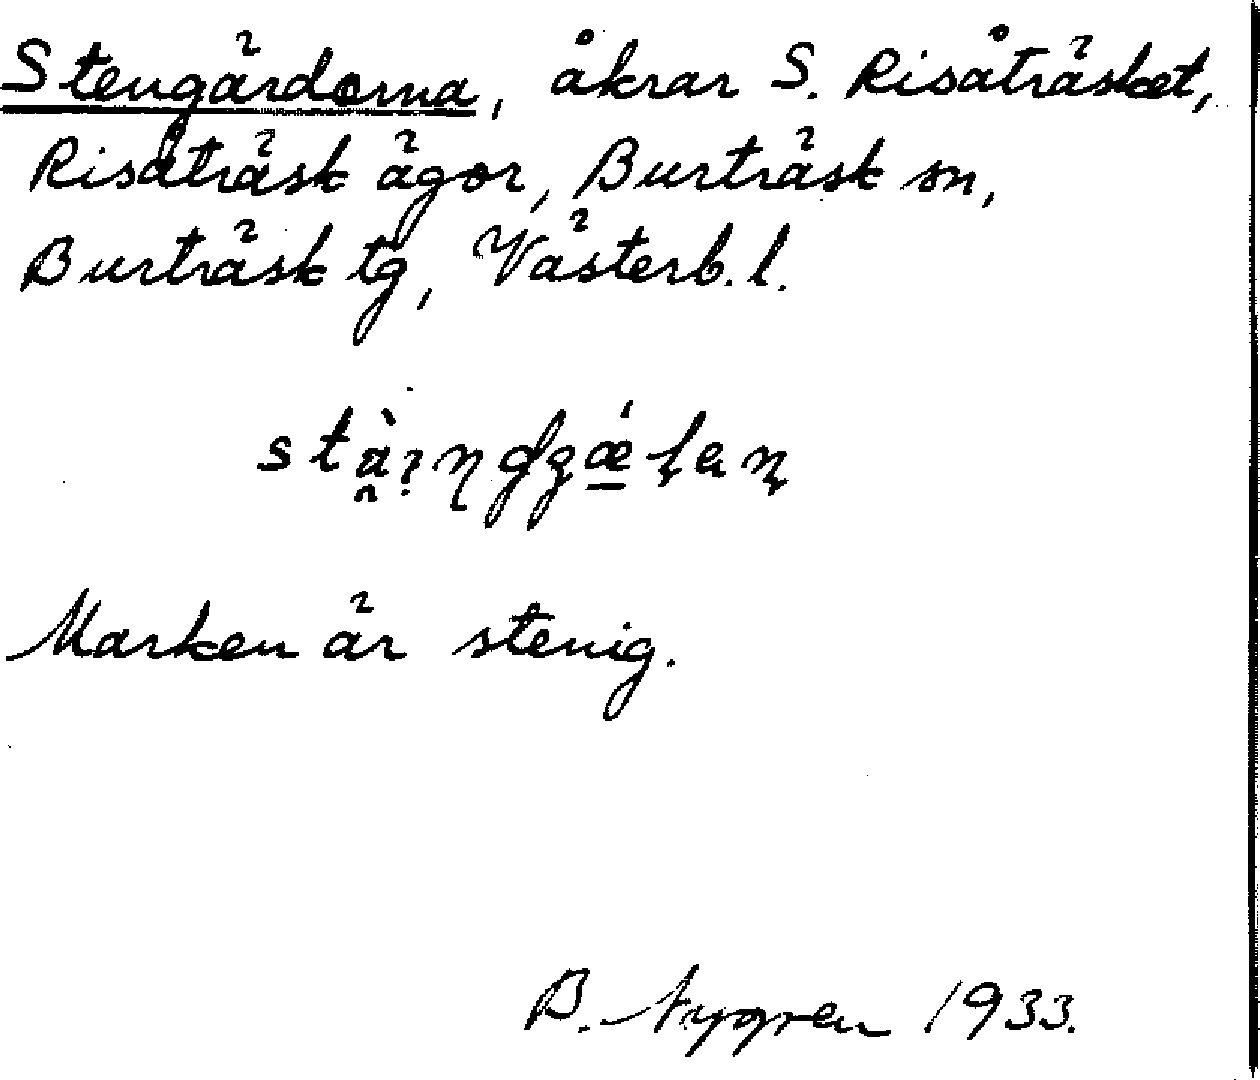 Stengärdorna, åkrar S. Risåträsket,
Risåträsk ägor, Burträsk sn,
Burträsk tg, Västerb. l.
Marken är stenig.
B. Nygren 1933.